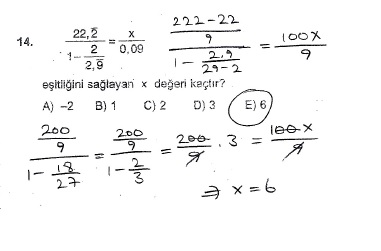 14. \frac{22,\overline{2}}{1-\frac{2}{2,\overline{9}}} = \frac{x}{0,09}   \frac{\frac{222-22}{9}}{1-\frac{2.9}{29-2}} = \frac{100x}{9}
eşitliğini sağlayan x değeri kaçtır?
A) –2 B) 1 C) 2 D) 3 E) 6
\frac{\frac{200}{9}}{1-\frac{18}{27}} = \frac{\frac{200}{9}}{1-\frac{2}{3}} = \frac{200}{9} . 3 = \frac{100x}{9}
⇒ x = 6